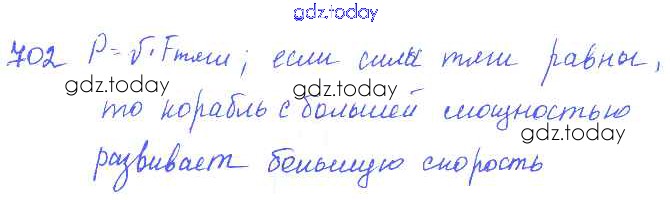 gdz.today
702 P = υ·Fтяги; если силы тяги равны,
gdz.today gdz.today
то корабль с большей мощностью
gdz.today gdz.today
развивает большую скорость